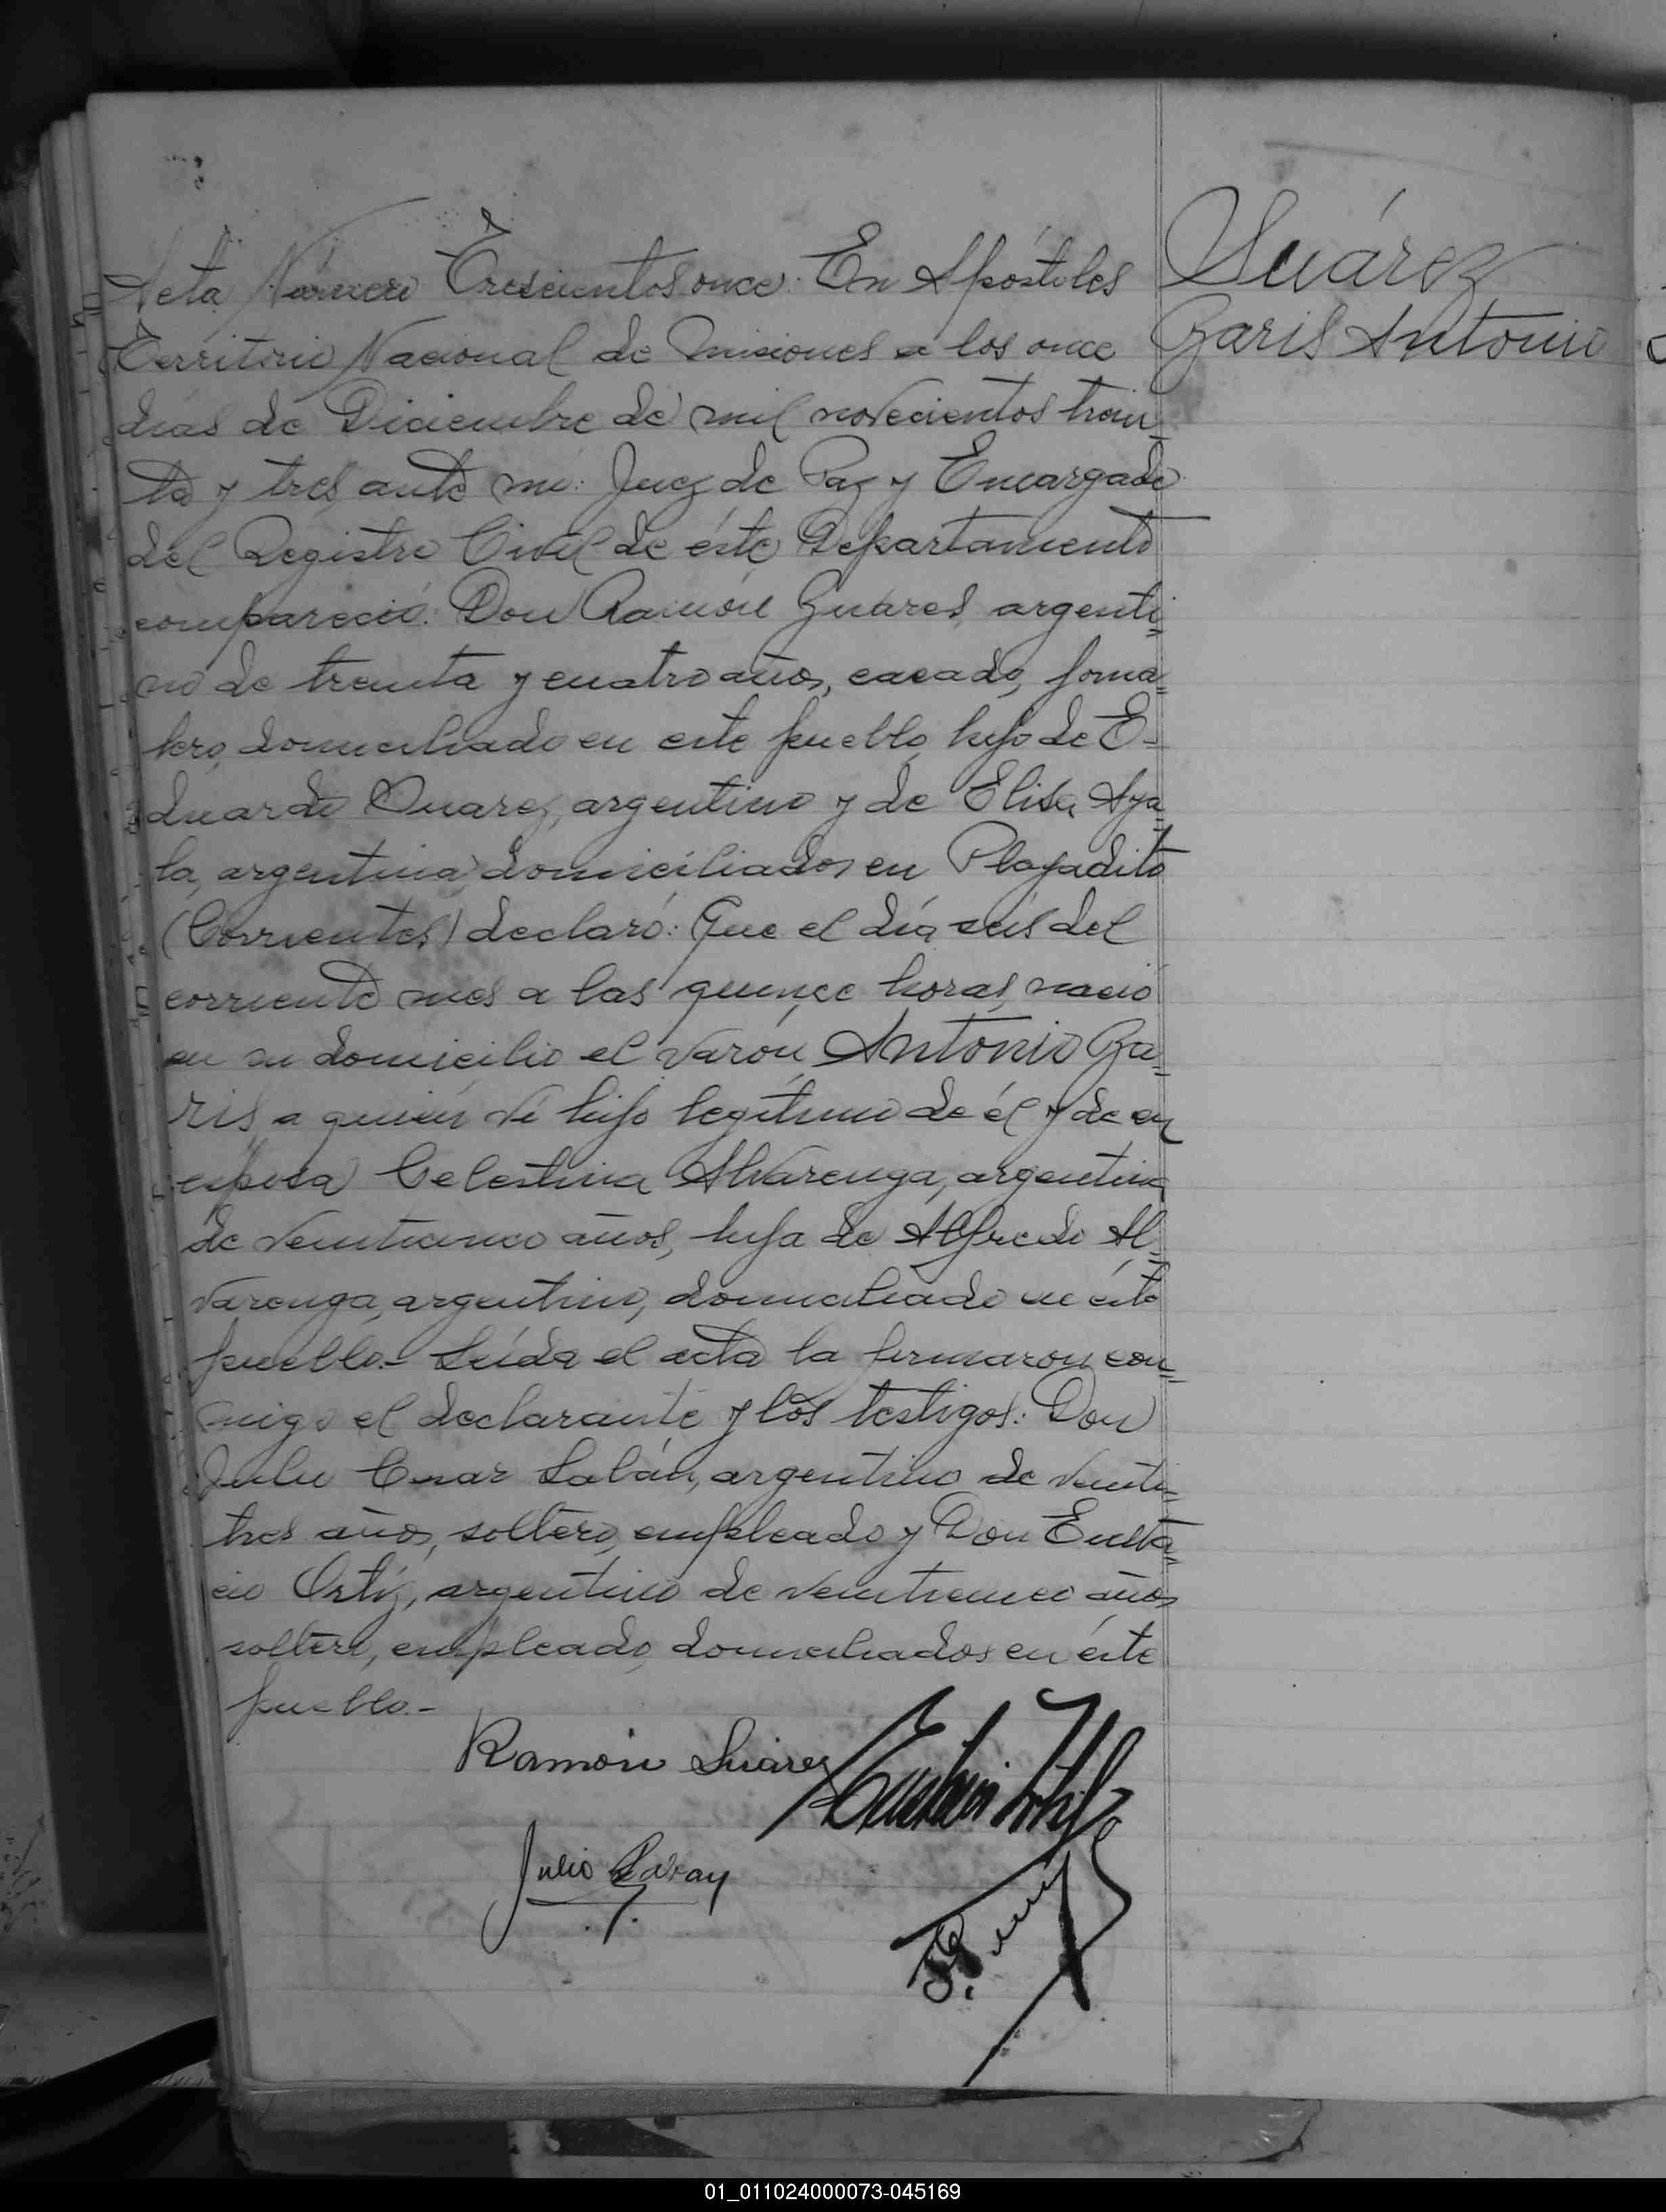 Acta Número Trescientos once: En Apóstoles
Territorio Nacional de Misiones a los once
días de Diciembre de mil novecientos trein
ta y tres, ante mi: Juez de Paz y Encargado
del Registro Civil de éste Departamento
compareció: Don Ramón Suares, argenti=
no de treinta y cuatro años, casado, jorna=
lero, domiciliado en este pueblo, hijo de E=
duardo Suarez, argentino y de Elisa Aya=
la, argentina, domiciliados en Playadito
(Corrientes) declaró: Que el día seis del
corriente mes a las quince horas, nació
en su domicilio el varón Antonio Za=
ris, a quien ví hijo legítimo de él y de su
esposa Celestina Alvarenga, argentina
de veinticinco años, hija de Alfredo Al=
varenga, argentino, domiciliado en éste
pueblo.- Leída el acta la firmaron con=
migo el declarante y los testigos: Don
Julio Cesar Labán, argentino de veinti=
tres años, soltero, empleado y Don Eusta=
cio Ortíz, argentino de veinticinco años
soltero, empleado, domiciliados en éste
pueblo.-
Suárez
Zaris Antonio
Ramón Suárez
Julio
01_011024000073-045169